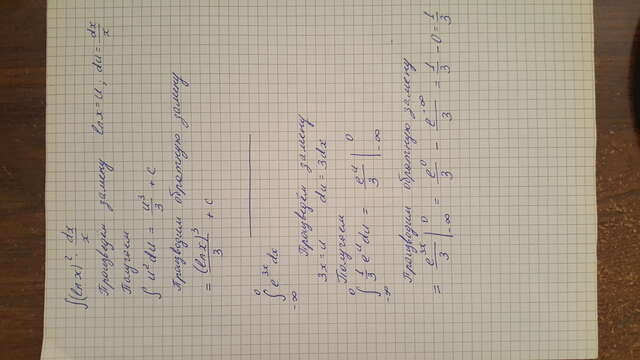 ∫(ln x)² · dx/x
Произведём замену ln x = u; du = dx/x
Получаем
∫ u² du = u³/3 + c
Производим обратную замену
= (ln x)³/3 + c
∫₋∞⁰ e³ˣ dx
Произведём замену
3x = u du = 3dx
Получаем
∫₋∞⁰ 1/3 eᵘ du = eᵘ/3 |₋∞⁰
Производим обратную замену
= e³ˣ/3 |₋∞⁰ = e⁰/3 - e⁻∞/3 = 1/3 - 0 = 1/3